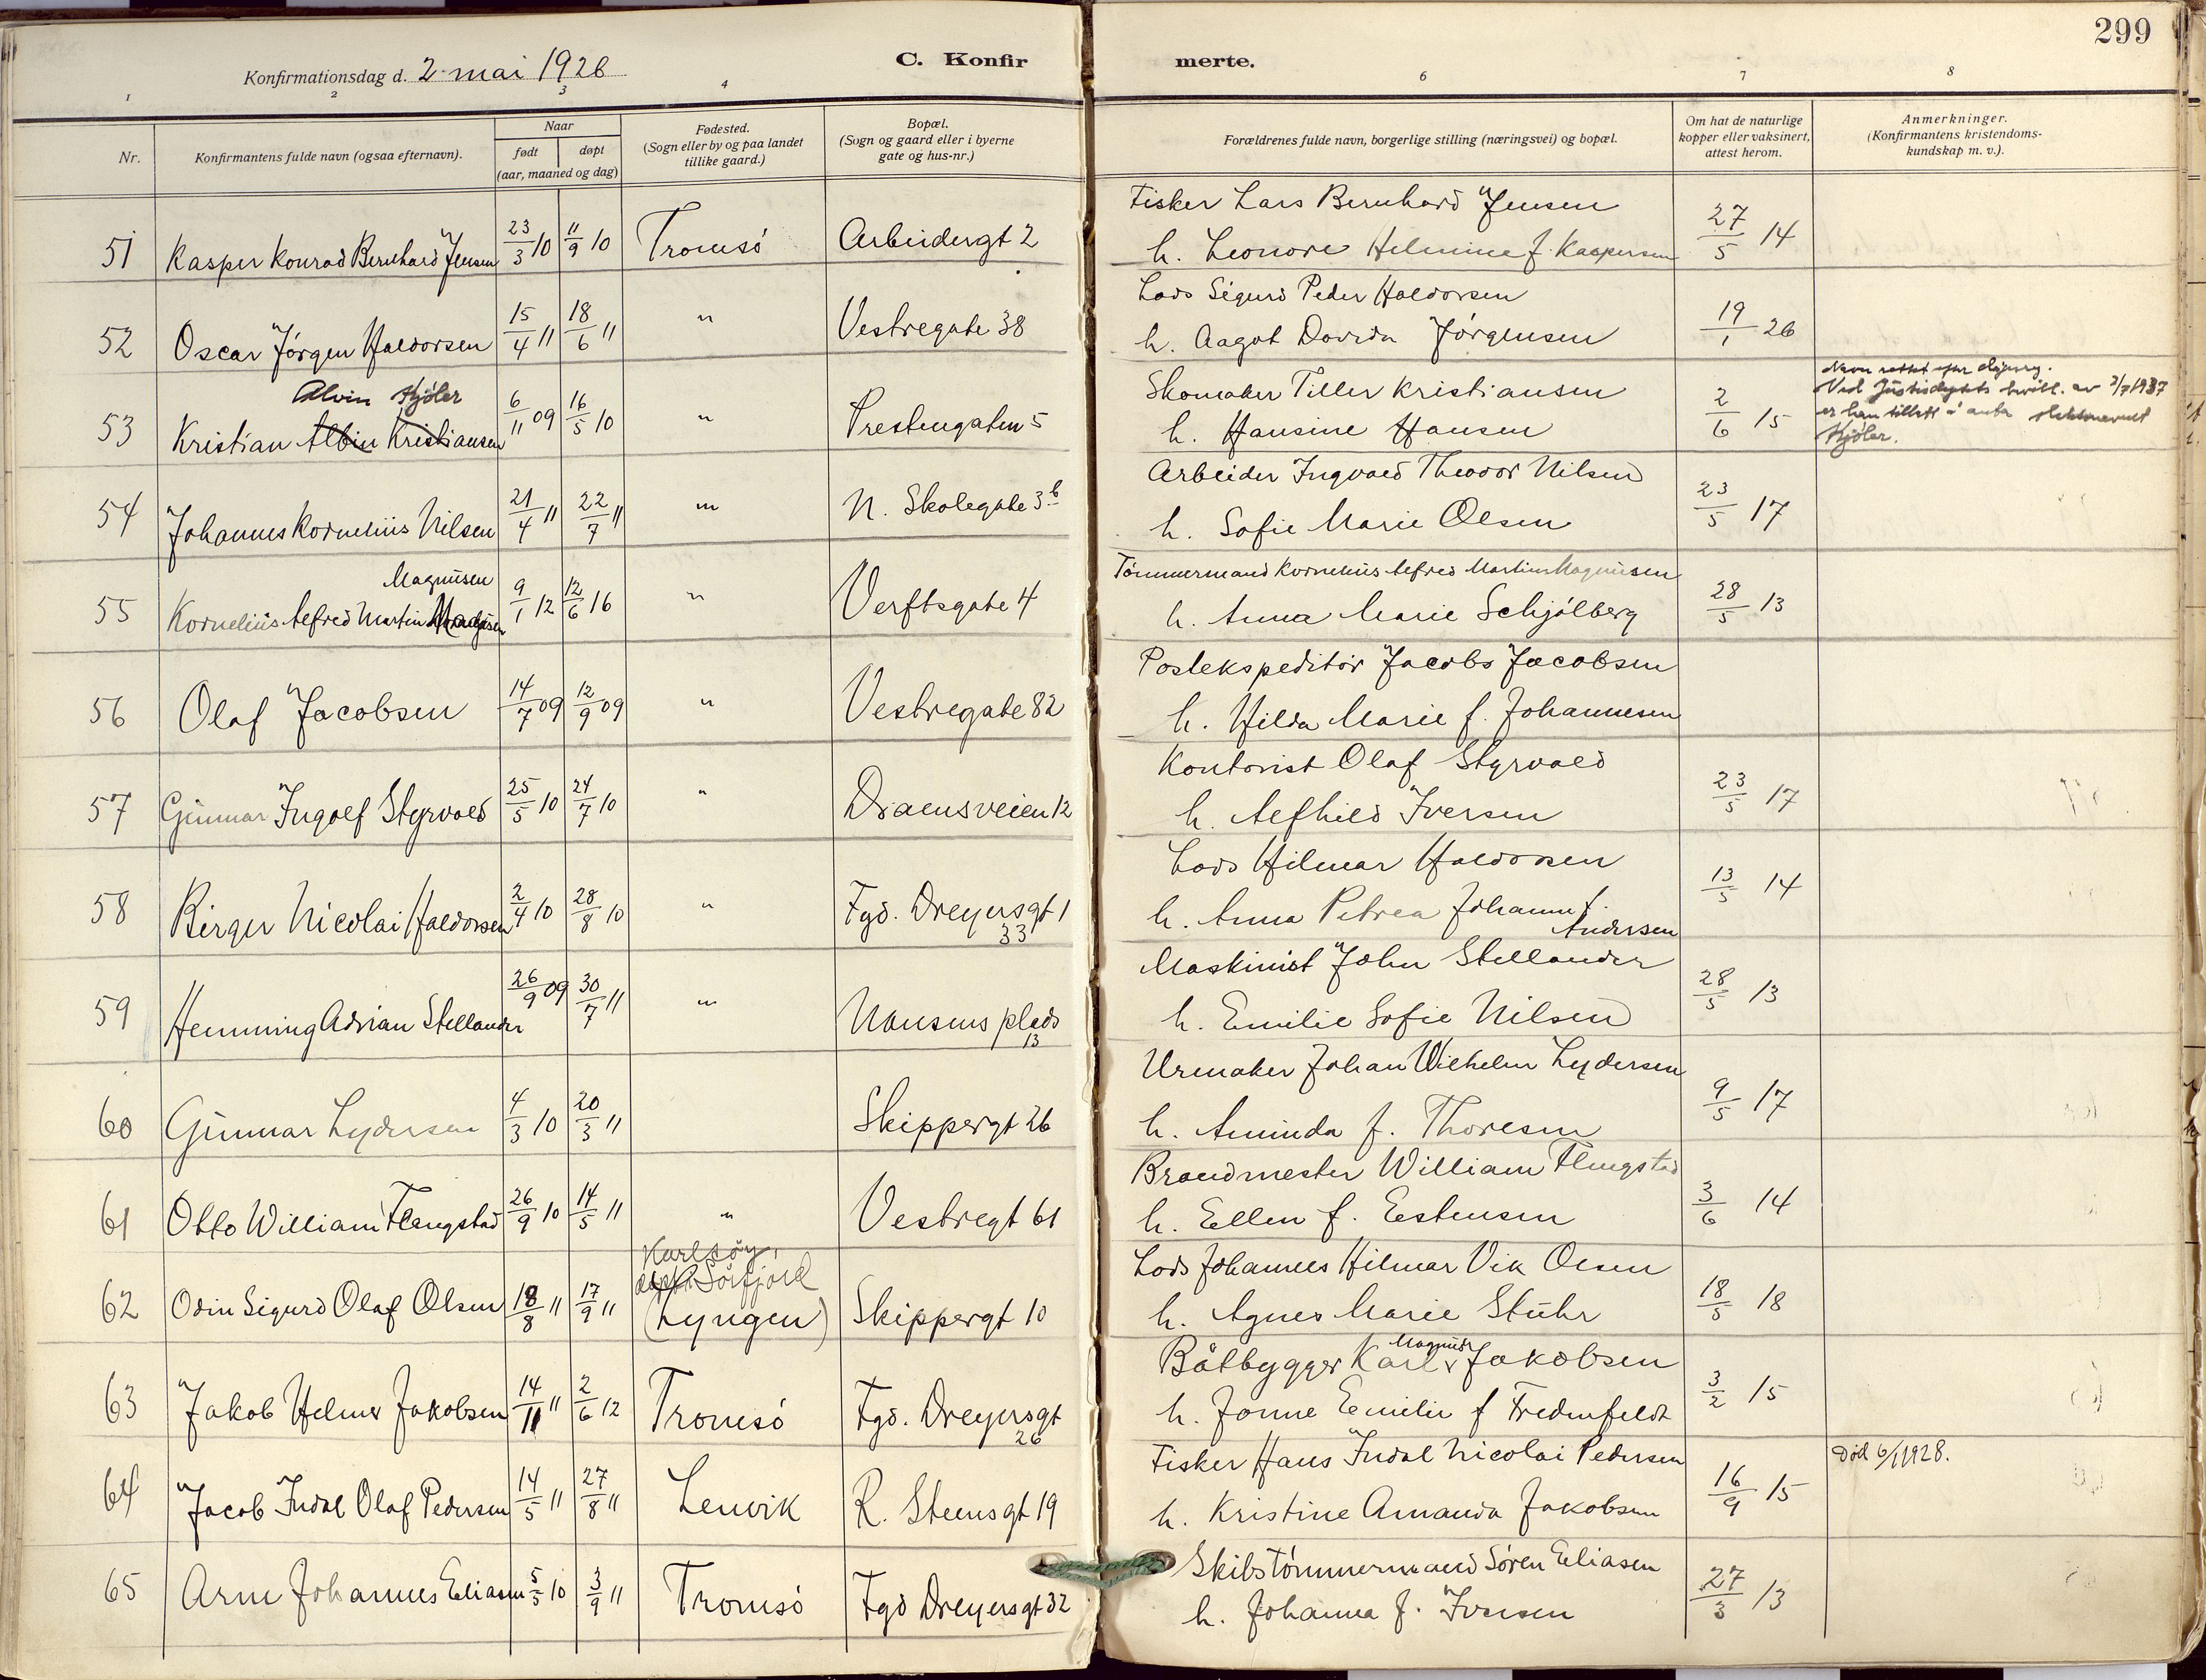 299
Konfirmationsdag d. 2 mai 1926
C. Konfir merte.
1 2 3 4 6 7 8
Nr.
Konfirmantens fulde navn (ogsaa efternavn).
Naar
født
døpt
(aar, maaned og dag)
Fødested.
(Sogn eller by og paa landet
tillike gaard.)
Bopæl.
(Sogn og gaard eller i byerne
gate og hus-nr.)
Forældrenes fulde navn, borgerlige stilling (næringsvei) og bopæl.
Om hat de naturlige
kopper eller vaksinert,
attest herom.
Anmerkninger.
(Konfirmantens kristendoms-
kundskap m. v.).
Fisker Lars Bernhard Jensen
51 Kasper Konrad Bernhard Jensen 23/3 10 11/9 10 Tromsö Arbeidergt 2 h. Leonore Helmine f. Kaspersen 27/5 14
Lods Sigurd Peder Haldorsen
52 Oscar Jörgen Haldorsen 15/4 11 18/6 11 " Vestregate 38 h. Aagot Davida Jörgensen 19/1 26
Alvin Kjöler
Skomaker Tiller Kristiansen
53 Kristian Albin Kristiansen 6/11 09 16/5 10 " Prestengaten 5 h. Hansine Hansen 2/6 15
Navn rettet efter
Ved Justisdepts bevill. av 2/7 1937
er han tillatt å anta slektsnavnet
Kjöler.
Arbeider Ingvald Theodor Nilsen
54 Johannes Kornelius Nilsen 21/4 11 22/7 11 " N. Skolegate 3 b h. Sofie Marie Olsen 23/5 17
Magnusen
Tömmermand Kornelius Alfred Martin Magnusen
55 Kornelius Alfred Martin 9/1 12 12/6 16 " Verftsgate 4 h. Anna Marie Schjölberg 28/5 13
Postekspeditör Jacobs Jacobsen
56 Olaf Jacobsen 14/7 09 12/9 09 " Vestregate 82 h. Hilda Marie f. Johannesen
Kontorist Olaf Styrvold
57 Gunnar Ingolf Styrvold 25/5 10 24/7 10 " Dramsveien 12 h. Alfhild Iversen 23/5 17
Lods Hilmar Haldorsen
58 Birger Nicolai Haldorsen 2/4 10 28/8 10 " Fgd. Dreyersgt 1
33
h. Anna Petrea Johanna f.
Andersen
13/5 14
Maskinist John Stellander
59 Hemming Adrian Stellander 26/9 09 30/7 11 " Nansens plads
13
h. Emilie Sofie Nilsen 28/5 13
Urmaker Johan Wilhelm Lydersen
60 Gunnar Lydersen 4/3 10 20/3 11 Skippergt 26 h. Aminda f. Thoresen 9/5 17
Brandmester William Flengstad
61 Otto William Flengstad 26/9 10 14/5 11 " Vestregt 61 h. Ellen f. Estensen 3/6 14
Karlsöy,
Sörfjord
Lods Johannes Hilmar Vik Olsen
62 Odin Sigurd Olaf Olsen 18/8 11 17/9 11 (Lyngen) Skippergt 10 h. Agnes Marie Stuhr 18/5 18
Magnus
Båtbygger Karl v Jakobsen
63 Jakob Helmer Jakobsen 14/11 11 2/6 12 Tromsö Fgd. Dreyersgt
26
h. Jonne Emilie f Fredenfeldt 3/2 15
Fisker Hans Indal Nicolai Pedersen
64 Jacob Indal Olaf Pedersen 14/5 11 27/8 11 Lenvik R. Steensgt 19 h. Kristine Amanda Jakobsen 16/9 15 Död 6/1 1928.
Skibstömmermand Sören Eliasen
65 Arne Johannes Eliasen 5/5 10 3/9 11 Tromsö Fgd Dreyersgt 32 h. Johanna f. Iversen 27/3 13